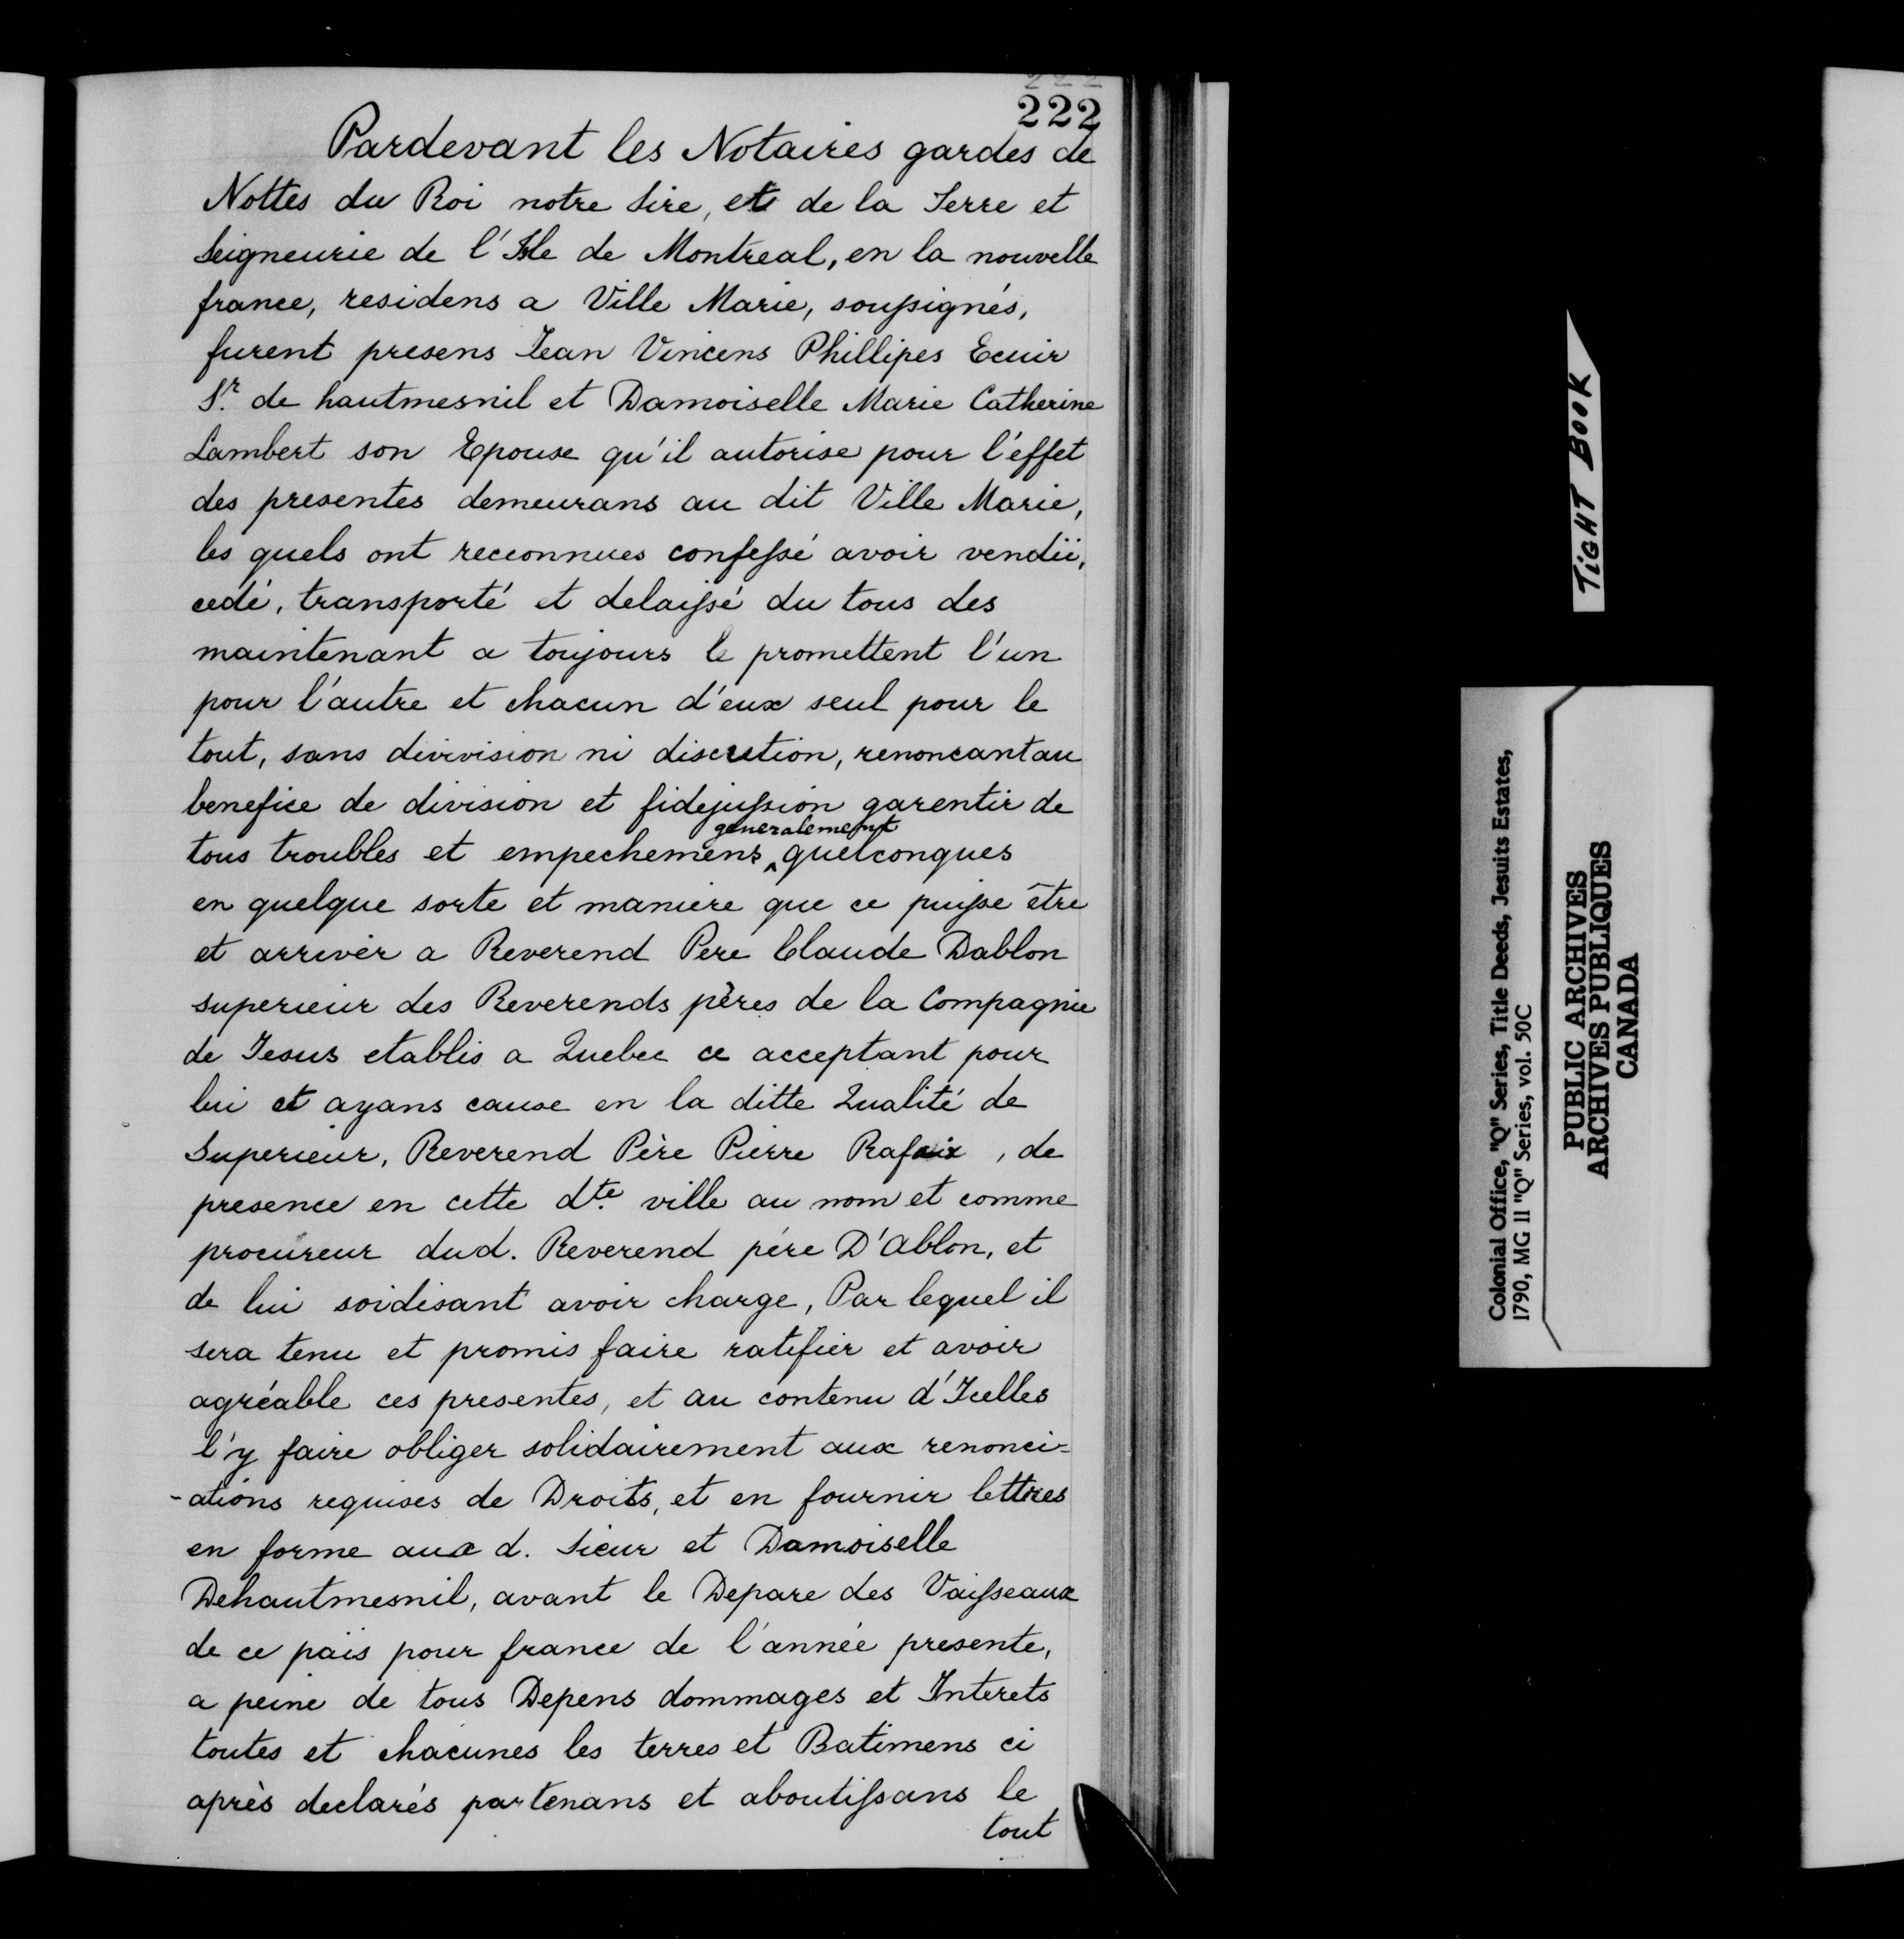 222
222
Pardevant les Notaires gardes de
Nottes du Roi notre Sire, et de la Terre et
Seigneurie de l'Isle de Montreal, en la nouvelle
france, residens a Ville Marie, soussignés,
furent presens Jean Vincens Phillipes Ecuir
Sr. de hautmesnil et Damoiselle Marie Catherine
Lambert son Epouse qu'il autorise pour l'effet
des presentes demeurans au dit Ville Marie,
les quels ont reconnues confessé avoir vendü,
cedé, transporté et delaissé du tous des
maintenant a toujours le promettent l'un
pour l'autre et chacun d'eux seul pour le
tout, sans divivision ni discution, renoncant au
benefice de division et fidejussion garentir de
tous troubles et empechemens generalement quelconques
en quelque sorte et maniere que ce puisse être
et arriver a Reverend Pere Claude Dablon
superieur des Reverends pères de la Compagnie
de Jesus etablis a Quebec ce acceptant pour
lui et ayans cause en la ditte Qualité de
Superieur, Reverend Père Pierre Rafaix, de
presence en cette dte. ville au nom et comme
procureur dud. Reverend père D'Ablon, et
de lui soidisant avoir charge, Par lequel il
sera tenu et promis faire ratifier et avoir
agréable ces presentes, et au contenu d'Icelles
l'y faire obliger solidairement aux renonci-
-ations requises de Droits, et en fournir lettres
en forme aux d. Sieur et Damoiselle
Dehautmesnil, avant le Depare des Vaisseaux
de ce païs pour france de l'année presente,
a peine de tous Depens dommages et Interets
toutes et chacunes les terres et Batimens ci
après declarés partenans et aboutissans le
tout
TiGHT BOOK
Colonial Office, "Q" Series, Title Deeds, Jesuits Estates,
1790, MG 11 "Q" Series, vol. 50C
PUBLIC ARCHIVES
ARCHIVES PUBLIQUES
CANADA